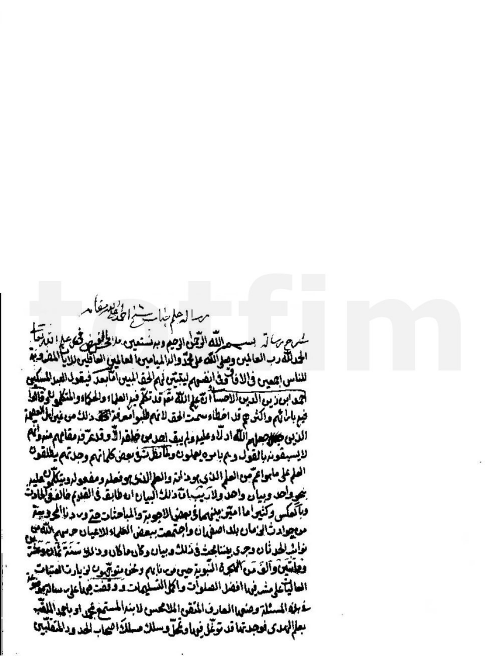 رسالة علم جناب شيخ احمد
شرح رسالة بسم الله الرحمن الرحيم وبه نستعين ملا محسن الفيض في علم الله تعالى
الحمد لله رب العالمين وصلى الله على محمد وآله الميامين العالمين العاملين للآيات المضروبة
للناس اجمعين في الآفاق وفي انفسهم ليتبين لهم الحق المبين اما بعد فيقول العبد المسكين
احمد ابن زين الدين الاحسائي ان علم الله تعالى قد تكلم فيه العلماء والحكماء والمتكلمون وقالوا
فيه بآرائهم واكثرهم قد اخطاء سمت الحق لانهم طلبوا معرفة الحق ذلك من غير اهل العصمة
الذين جعلهم الله ادلاء عليه ولم يبق احد من خلقه الا وقد عرفه مقامهم منه وانهم
لا يسبقونه بالقول وهم بامره يعملون واذا نظرت في بعض كلماتهم وجدتهم يطلقون
العلم على ما هو اعم من العلم الذي هو ذاته والعلم الذي هو فعله ومفعوله ويتكلمون عليه
بنحو واحد وبيان واحد ولا ريب ان ذلك البيان ان طابق في القديم خالف في الحادث
وبالعكس وكثيرا ما اميز بينهما في بعض الاجوبة والمباحثات حتى وردنا المحروسة
من حوادث الزمان بلد اصفهان واجتمعت ببعض العلماء الاعيان حرسهم الله من
نوائب الحدثان وجرى بيننا بحث في ذلك وبيان وكان ما كان وذلك سنة ثمان وثلاثين
ومائتين والف من الهجرة النبوية حين وردنا بهم ونحن متوجهون لزيارت العتبات
العاليات على مشرفيها افضل الصلوات واكمل التسليمات ووقفت حينها على رسالة
في هذه المسئلة وضعها العارف المتقن الملا محسن لابنه المستمع محمد او باحمد الملقب
بعلم الهدى فوجدتها قد توغل فيها وتمحل وسلك مسلك اصحاب الحدود المتقلبين